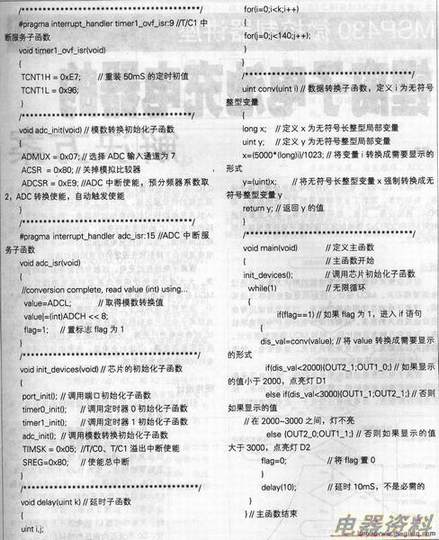 /*******************************************/
#pragma interrupt_handler timer1_ovf_isr:9 //T/C1 中
断服务子函数
void timer1_ovf_isr(void)
{
TCNT1H = 0xE7; // 重装 50mS 的定时初值
TCNT1L = 0x96;
}
/*******************************************/
void adc_init(void) // 模数转换初始化子函数
{
ADMUX = 0x07; // 选择 ADC 输入通道为 7
ACSR = 0x80; // 关掉模拟比较器
ADCSR = 0xE9; //ADC 中断使能，预分频器系数取
2，ADC 转换使能，自动触发使能
}
/*******************************************/
#pragma interrupt_handler adc_isr:15 //ADC 中断服
务子函数
void adc_isr(void)
{
//conversion complete, read value (int) using...
value=ADCL; // 取得模数转换值
value|=(int)ADCH << 8;
flag=1; // 置标志 flag 为 1
}
/*******************************************/
void init_devices(void) // 芯片的初始化子函数
{
port_init(); // 调用端口初始化子函数
timer0_init(); // 调用定时器 0 初始化子函数
timer1_init(); // 调用定时器 1 初始化子函数
adc_init(); // 调用模数转换初始化子函数
TIMSK = 0x05; //T/C0、T/C1 溢出中断使能
SREG=0x80; // 使能总中断
}
/*******************************************/
void delay(uint k) // 延时子函数
{
uint i,j;
for(i=0;i<k;i++)
{
for(j=0;j<140;j++);
}
}
/*******************************************/
uint conv(uint i) // 数据转换子函数，定义 i 为无符号
整型变量
{
long x; // 定义 x 为无符号长整型局部变量
uint y; // 定义 y 为无符号整型局部变量
x=(5000*(long)i)/1023; // 将变量 i 转换成需要显示的
形式
y=(uint)x; // 将无符号长整型变量 x 强制转换成无
符号整型变量 y
return y; // 返回 y 的值
}
/*******************************************/
void main(void) // 定义主函数
{ // 主函数开始
init_devices(); // 调用芯片初始化子函数
while(1) // 无限循环
{
if(flag==1) // 如果 flag 为 1，进入 if 语句
{
dis_val=conv(value); // 将 value 转换成需要显示
的形式
if(dis_val<2000){OUT2_1;OUT1_0;} // 如果显示
的值小于 2000，点亮灯 D1
else if(dis_val<3000){OUT1_1;OUT2_1;} // 否则
如果显示的值
// 在 2000~3000 之间，灯不亮
else {OUT2_0;OUT1_1;} // 否则如果显示的值
大于 3000，点亮灯 D2
flag=0; // 将 flag 置 0
}
delay(10); // 延时 10mS，不是必需的
}
} // 主函数结束
电器资料